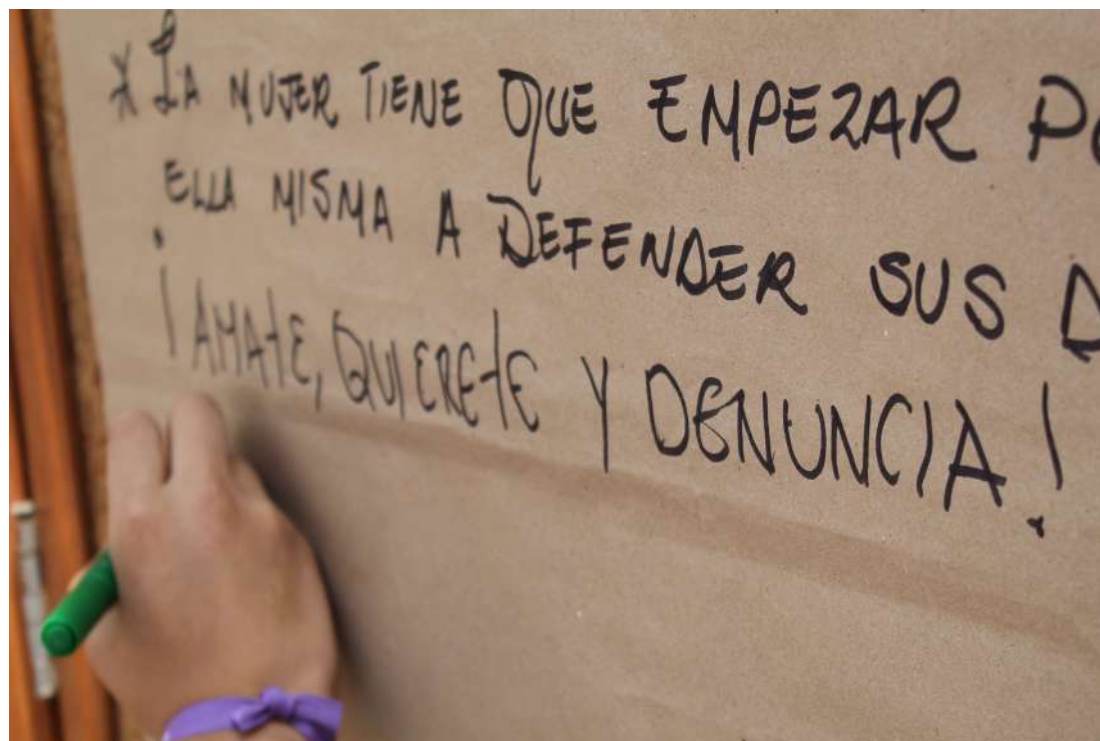 * LA MUJER TIENE QUE EMPEZAR
ELLA MISMA A DEFENDER SUS
¡AMATE, QUIERETE Y DENUNCIA!